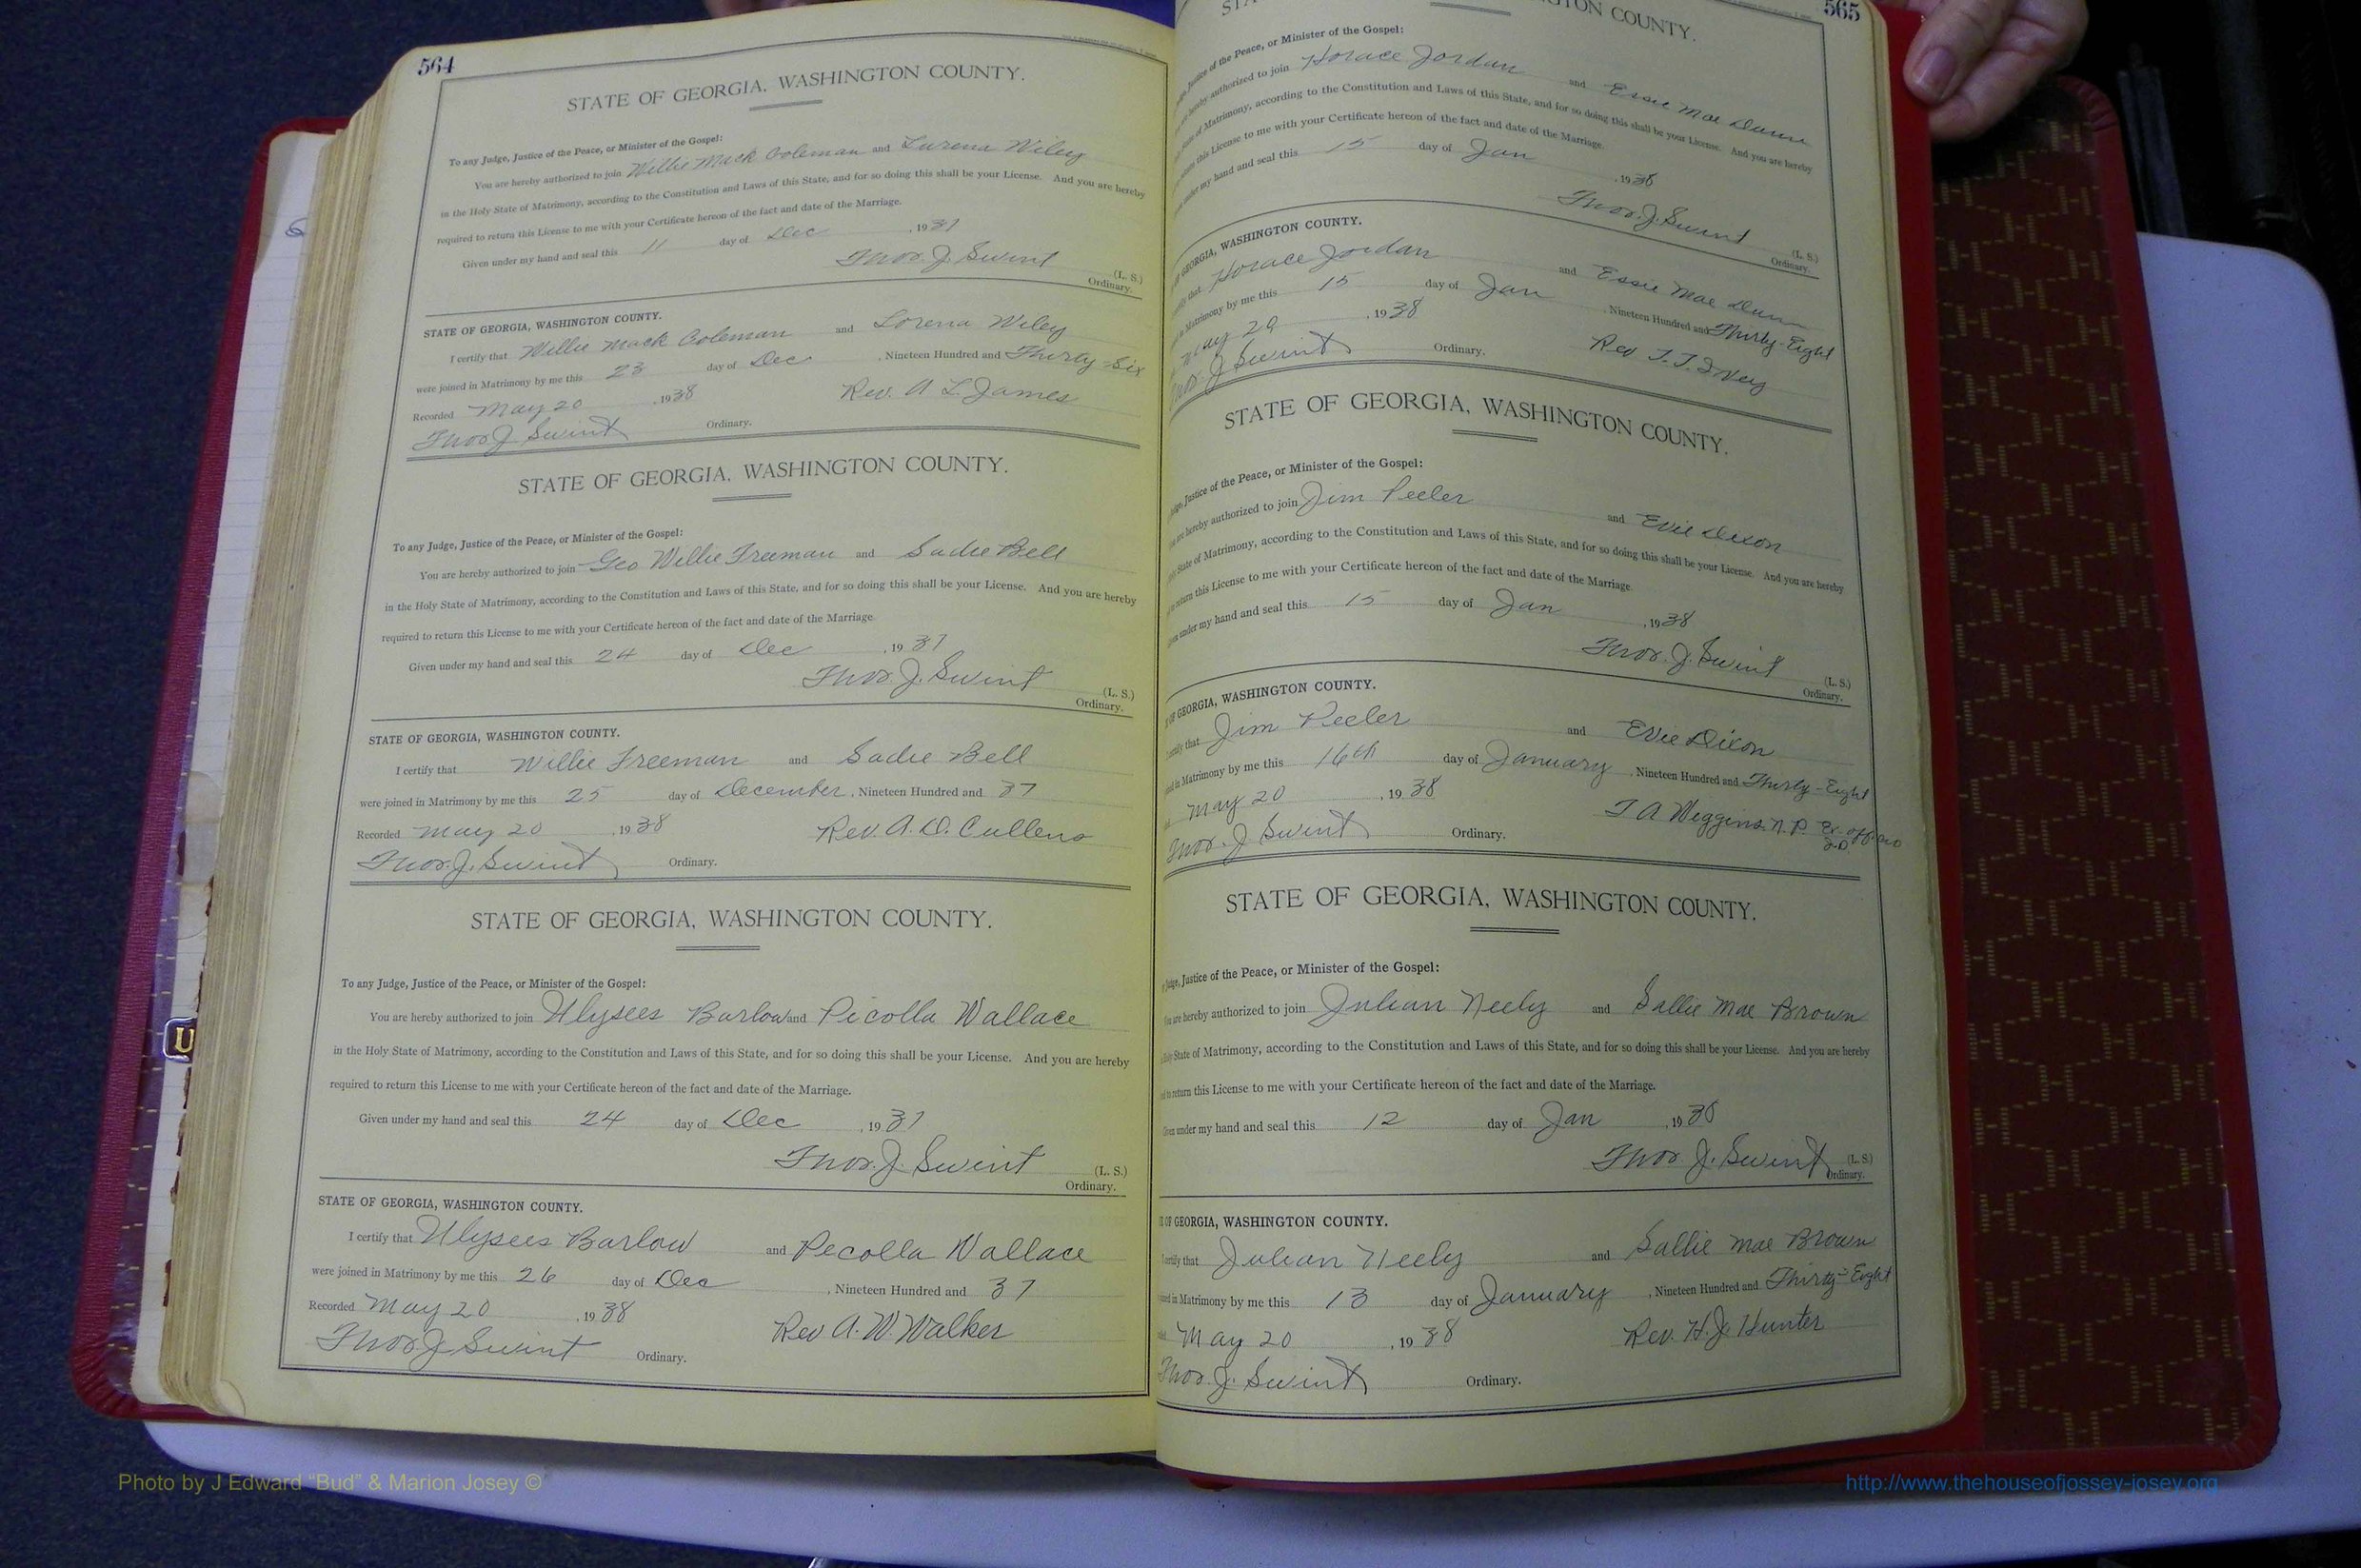 564
STATE OF GEORGIA, WASHINGTON COUNTY.
To any Judge, Justice of the Peace, or Minister of the Gospel:
You are hereby authorized to join Willie Mack Coleman and Lurena Wiley
in the Holy State of Matrimony, according to the Constitution and Laws of this State, and for so doing this shall be your License. And you are hereby
required to return this License to me with your Certificate hereon of the fact and date of the Marriage.
Given under my hand and seal this 11 day of Dec , 1937
Thos. J. Swint (L. S.)
Ordinary.
STATE OF GEORGIA, WASHINGTON COUNTY.
I certify that Willie Mack Coleman and Lorena Wiley
were joined in Matrimony by me this 23 day of Dec , Nineteen Hundred and Thirty-Six
Recorded May 20 , 1938 Rev. A L. James
Thos J Swint Ordinary.
STATE OF GEORGIA, WASHINGTON COUNTY.
To any Judge, Justice of the Peace, or Minister of the Gospel:
You are hereby authorized to join Geo Willie Freeman and Sadie Bell
in the Holy State of Matrimony, according to the Constitution and Laws of this State, and for so doing this shall be your License. And you are hereby
required to return this License to me with your Certificate hereon of the fact and date of the Marriage.
Given under my hand and seal this 24 day of Dec , 1937
Thos. J. Swint (L. S.)
Ordinary.
STATE OF GEORGIA, WASHINGTON COUNTY.
I certify that Willie Freeman and Sadie Bell
were joined in Matrimony by me this 25 day of December, Nineteen Hundred and 37
Recorded May 20 , 1938 Rev. A. D. Cullens
Thos. J. Swint Ordinary.
STATE OF GEORGIA, WASHINGTON COUNTY.
To any Judge, Justice of the Peace, or Minister of the Gospel:
You are hereby authorized to join Ulysees Barlow and Picolla Wallace
in the Holy State of Matrimony, according to the Constitution and Laws of this State, and for so doing this shall be your License. And you are hereby
required to return this License to me with your Certificate hereon of the fact and date of the Marriage.
Given under my hand and seal this 24 day of Dec , 1937
Thos. J. Swint (L. S.)
Ordinary.
STATE OF GEORGIA, WASHINGTON COUNTY.
I certify that Ulysees Barlow and Pecolla Wallace
were joined in Matrimony by me this 26 day of Dec , Nineteen Hundred and 37
Recorded May 20 , 1938 Rev A. W. Walker
Thos J Swint Ordinary.
565
COUNTY.
Justice of the Peace, or Minister of the Gospel:
hereby authorized to join Horace Jordan and Essie Mae Dunn
of Matrimony, according to the Constitution and Laws of this State, and for so doing this shall be your License. And you are hereby
this License to me with your Certificate hereon of the fact and date of the Marriage.
under my hand and seal this 15 day of Jan , 1938
Thos. J. Swint (L. S.)
Ordinary.
GEORGIA, WASHINGTON COUNTY.
that Horace Jordan and Essie Mae Dunn
Matrimony by me this 15 day of Jan , Nineteen Hundred and Thirty-Eight
May 20 , 1938 Rev T. J. Ivey
Thos. J Swint Ordinary.
STATE OF GEORGIA, WASHINGTON COUNTY.
Judge, Justice of the Peace, or Minister of the Gospel:
are hereby authorized to join Jim Peeler and Evie Dixon
State of Matrimony, according to the Constitution and Laws of this State, and for so doing this shall be your License. And you are hereby
return this License to me with your Certificate hereon of the fact and date of the Marriage.
under my hand and seal this 15 day of Jan , 1938
Thos. J. Swint (L. S.)
Ordinary.
OF GEORGIA, WASHINGTON COUNTY.
certify that Jim Peeler and Evie Dixon
in Matrimony by me this 16th day of January , Nineteen Hundred and Thirty-Eight
May 20 , 1938 T A Wiggins N. P. Ex-officio
Thos. J Swint Ordinary.
STATE OF GEORGIA, WASHINGTON COUNTY.
Judge, Justice of the Peace, or Minister of the Gospel:
You are hereby authorized to join Julian Neely and Sallie Mae Brown
Holy State of Matrimony, according to the Constitution and Laws of this State, and for so doing this shall be your License. And you are hereby
to return this License to me with your Certificate hereon of the fact and date of the Marriage.
Given under my hand and seal this 12 day of Jan , 1938
Thos. J. Swint (L. S.)
Ordinary.
OF GEORGIA, WASHINGTON COUNTY.
certify that Julian Neely and Sallie Mae Brown
in Matrimony by me this 13 day of January , Nineteen Hundred and Thirty-Eight
May 20 , 1938 Rev. H. J. Hunter
Thos. J. Swint Ordinary.
U
Photo by J Edward “Bud” & Marion Josey ©
http://www.thehouseofjossey-josey.org